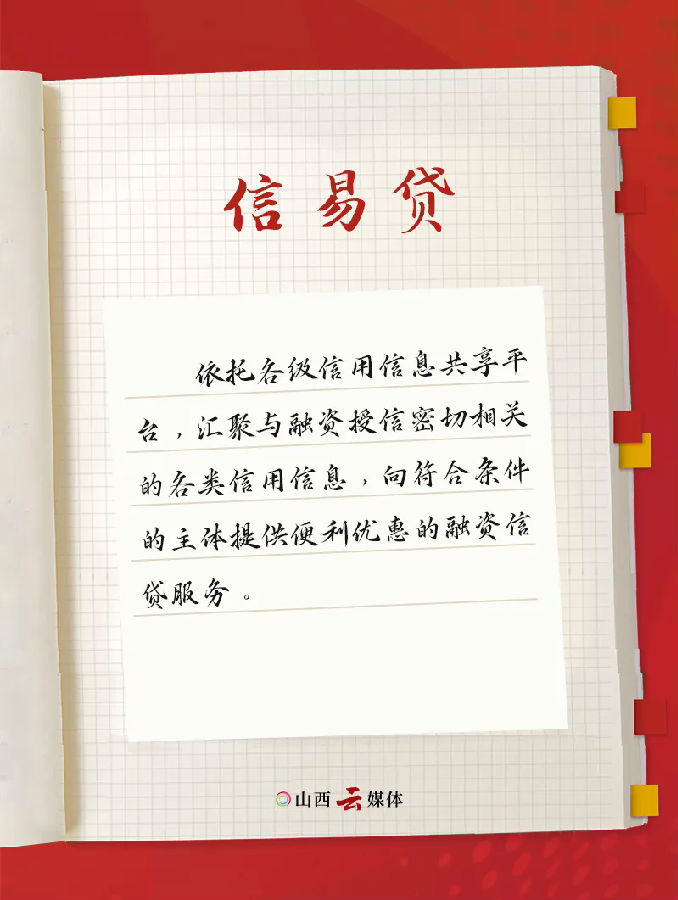 信易贷
依托各级信用信息共享平
台，汇聚与融资授信密切相关
的各类信用信息，向符合条件
的主体提供便利优惠的融资信
贷服务。
山西云媒体